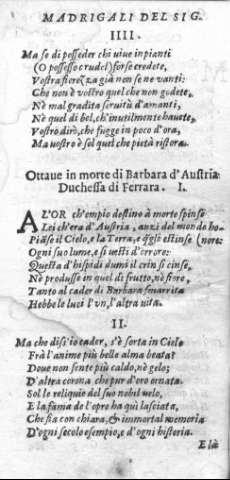 MADRIGALI DEL SIG.
IIII.
Ma se di posseder chi viue in pianti
(O possesso crudel) forse credete,
Vostra fierezza già non se ne vanti:
Che non è vostro quel che non godete,
Nè mal gradita seruitù d'amanti,
Nè quel di bel, ch'inutilmente hauete,
Vostro dirò, che fugge in poco d'ora,
Ma vostro è sol quel che pietà ristora.
Ottaue in morte di Barbara d'Austria
Duchessa di Ferrara. I.
ALOR ch'empio destino à morte spinse
Lei ch'era d'Austria, anzi del mondo ho-
Piãse il Cielo, e la Terra, e estinse (nore:
Ogni suo lume, e si vestì d'errore:
Questa d'hispidi dumi il crin si cinse,
Nè produsse in quel di frutto, nè fiore,
Tanto al cader di Barbara smarrita
Hebbe le luzi l'vn, l'altra vita.
II.
Ma che disi' io cader, s'è sorta in Cielo
Frà l'anime più belle alma beata?
Doue non sente più caldo, nè gelo;
D'altra corona che pur d'oro ornata.
Sol le reliquie del suo nobil velo,
E la fama de l'opre ha quì lasciata,
Che sia con chiara, & immortal memoria
D'ogni secolo esempio, e d'ogni historia.
E là